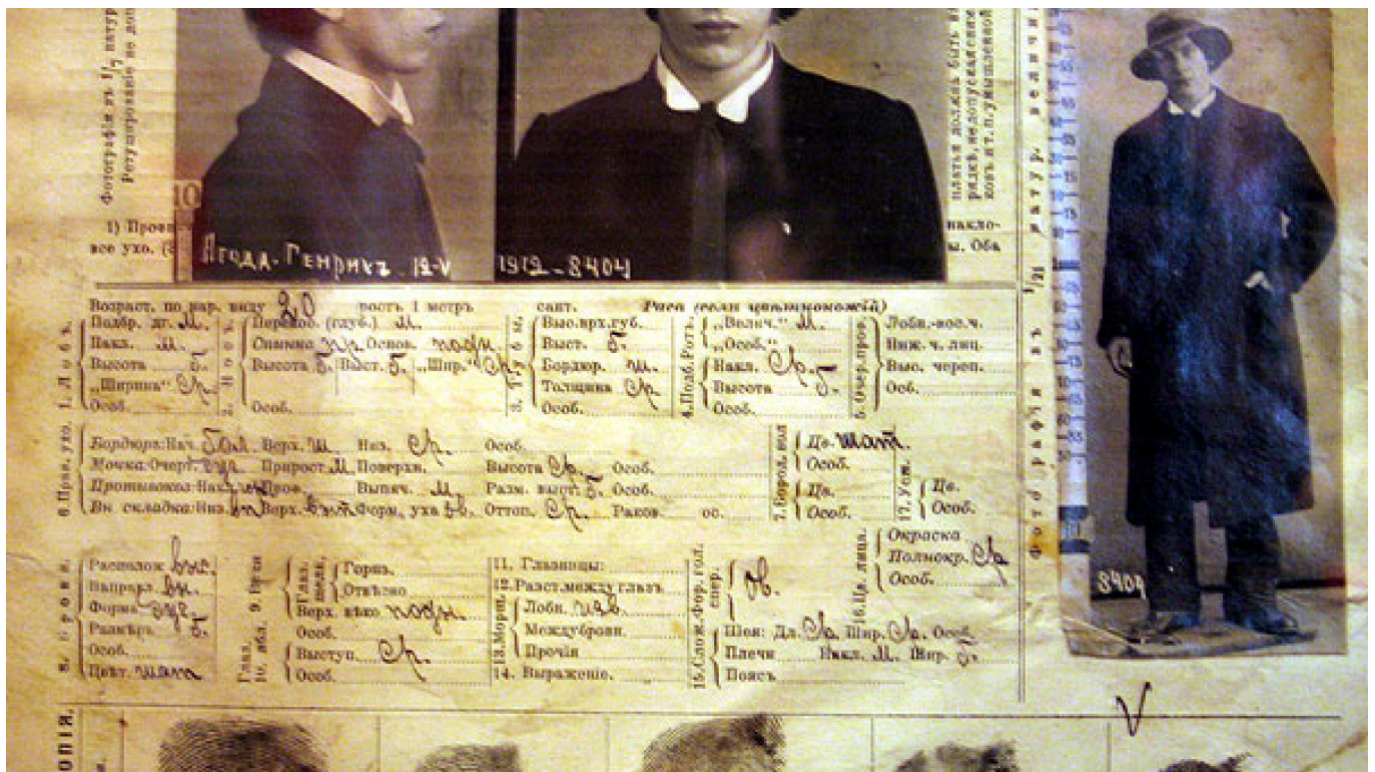 Фотографія въ 1/7 натур
Ретушированіе не до
платья долженъ быть
рядкѣ, недопускаемы
ковъ и т. п. умышленной
1) Пров
накло-
все ухо.
ы. Оба
10
Ягода. Генрихъ 12-V
1912-8404
Возраст. по нар. виду 20 ростъ 1 метръ сант. Раса (если цвѣтнокожій)
1. Лобъ.
Надбр. дг. М.
Накл. М.
Высота б.
„Ширина“ Ср.
Особ.
2. Носъ.
Переноc. (глуб.) М.
Спинка Основ. подн.
Высота б. Выст. б. „Шир.“ Ср.
Особ.
3. Губы.
Выс.врх.губ.
Выст. б.
Бордюр. ш.
Толщина Ср
Особ.
4. Подб. Ротъ.
„Велич.“ М.
„Особ.“
Накл. Ср.
Высота б.
Особ.
5. Очер. проф.
Лобн.-нос.ч.
Ниж. ч. лиц.
Выс. череп.
Особ.
6. Прав. ухо.
Бордюръ: Нач. бол. Верх. Ш Низ. Ср. Особ.
Мочка: Очерт. Прирост. М Поверхн. Высота Ср. Особ.
Противокоз: Проф. Выпяч. М. Разм. выст. б. Особ.
Вн. складка: Низ. вп Верх. Форм. уха ов. Оттоп. Ср. Раков. ос.
7. Бород. вол
Цв. Шат.
Особ.
Цв.
Особ.
17. Усы.
Цв.
Особ.
8. Брови.
Располож
Направл. вн.
Форма дуг.
Размѣръ б.
Особ.
Цвѣт. шат
9. Вѣки
Глаз. щель.
Гориз.
Отвѣсно
Верх. вѣко подн.
Особ.
10. Глаз. ябл.
Выступ. Ср.
Особ.
11. Глазницы:
12. Разст. между глазъ
13. Морщ.
Лобн. изв.
Междубровн.
Прочія
14. Выраженіе.
15. Слож. Фор. гол. спер.
ов.
Шея: Дл. Ср. Шир. Ср. Особ
Плечи Накл. М. Шир. Ср.
Поясъ
16. Цв. лица.
Окраска
Полнокр. Ср
Особ.
Фотографія въ 1/21 натур. величин
8404
V
ОПІЯ.